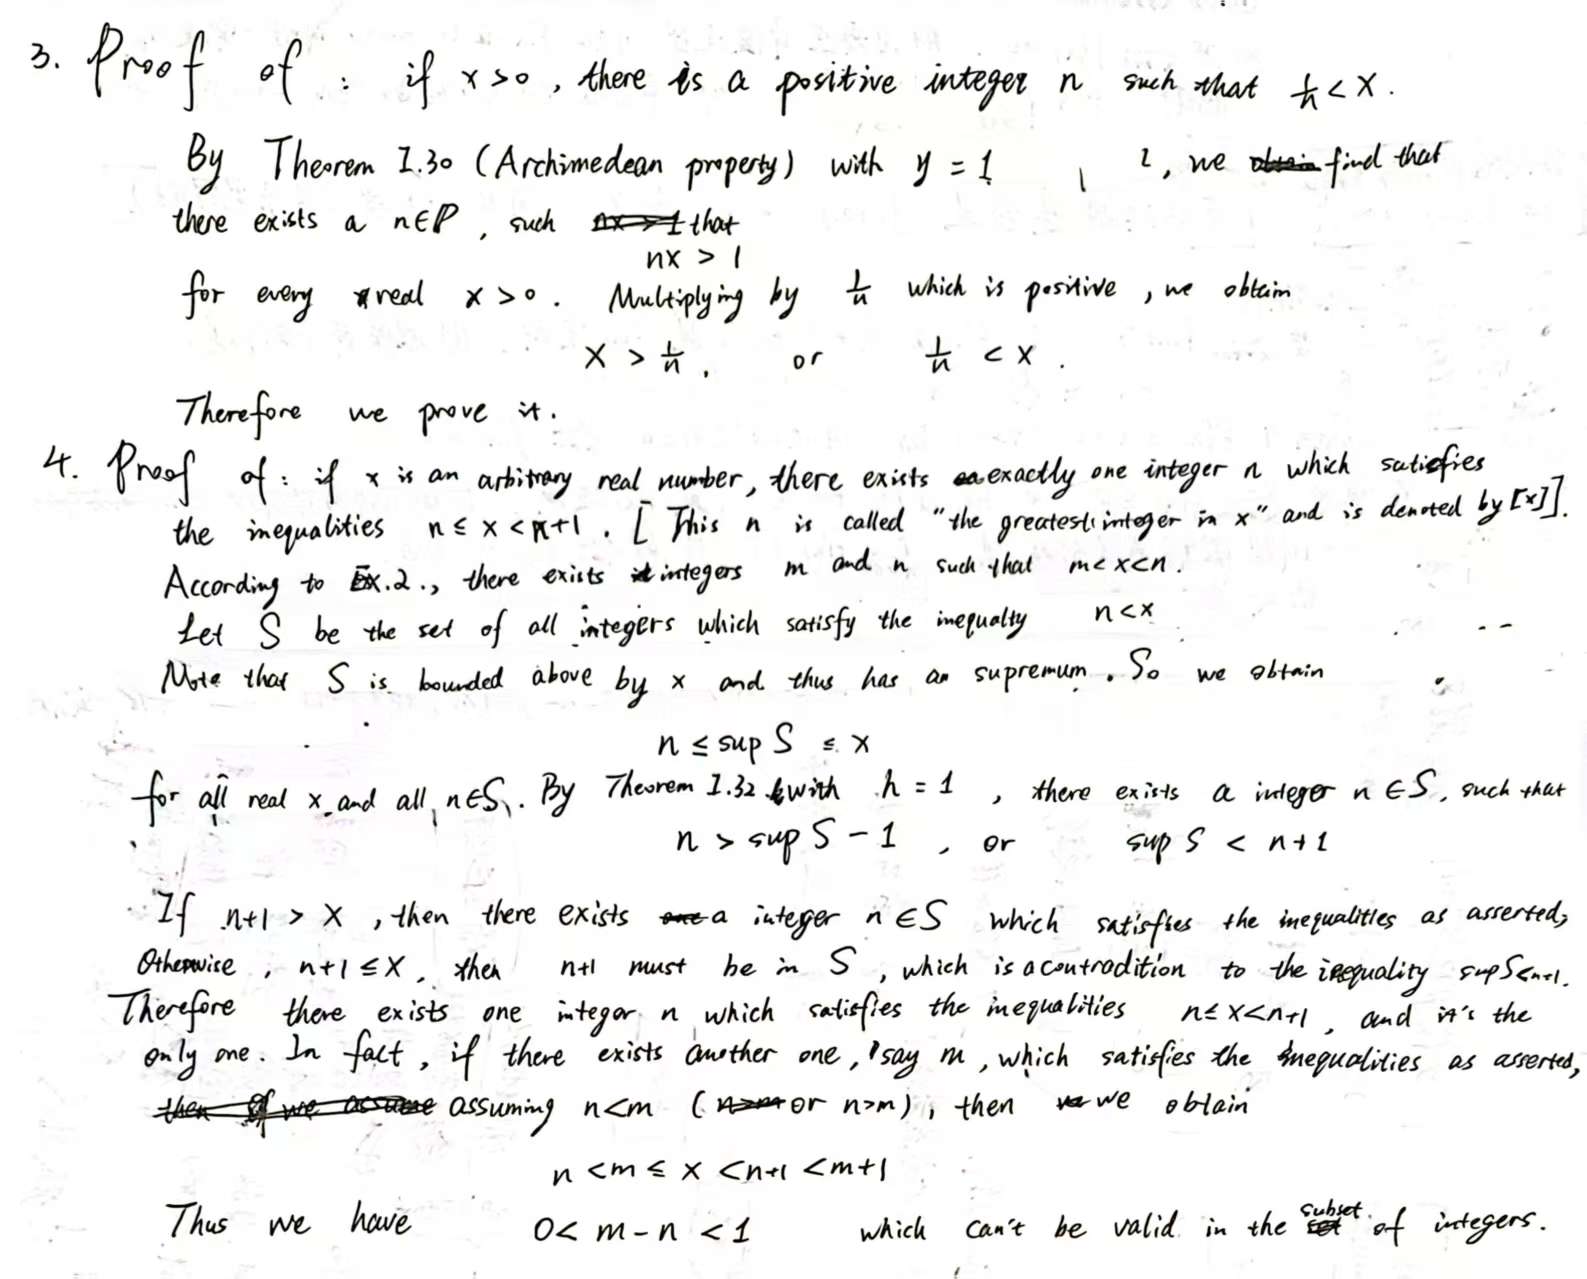 3. Proof of : if x>0, there is a positive integer n such that 1/n < x.
By Theorem I.30 (Archimedean property) with y = 1 , we find that
there exists a n∈P, such that
nx > 1
for every real x>0. Multiplying by 1/n which is positive, we obtain
x > 1/n, or 1/n < x.
Therefore we prove it.
4. Proof of: if x is an arbitrary real number, there exists exactly one integer n which satisfies
the inequalities n ≤ x < n+1. [This n is called "the greatest integer in x" and is denoted by [x]].
According to Ex.2., there exists integers m and n such that m<x<n.
Let S be the set of all integers which satisfy the inequalty n<x
Note that S is bounded above by x and thus has an supremum. So we obtain
n ≤ sup S ≤ x
for all real x and all n∈S. By Theorem I.32 with h = 1, there exists a integer n∈S, such that
n > sup S - 1, or sup S < n+1
If n+1 > x, then there exists a integer n∈S which satisfies the inequalities as asserted;
Otherwise, n+1 ≤ x, then n+1 must be in S, which is a contradition to the inequality sup S<n+1.
Therefore there exists one integer n which satisfies the inequalities n≤x<n+1, and it's the
only one. In fact, if there exists another one, say m, which satisfies the inequalities as asserted,
assuming n<m (or n>m), then we obtain
n < m ≤ x < n+1 < m+1
Thus we have 0 < m-n < 1 which can't be valid in the subset of integers.